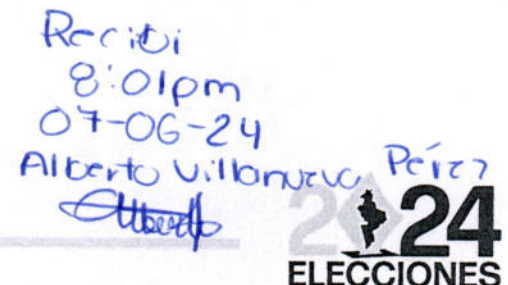 Recibi
8:01pm
07-06-24
Alberto Villanueva Pérez
Alberto
2024
ELECCIONES